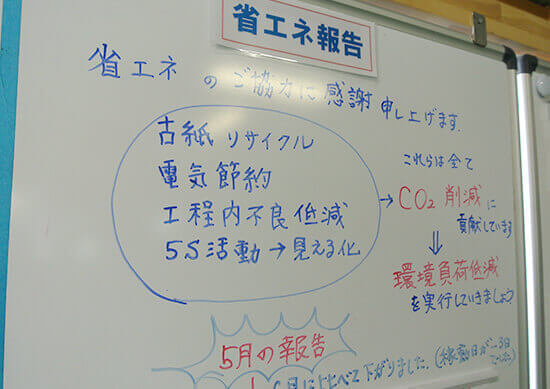 省エネ報告
省エネ のご協力に感謝申し上げます.
古紙リサイクル
電気節約
工程内不良低減
5S活動→見える化
これらは全て
→ CO2 削減に
貢献しています
⇓
環境負荷低減
を実行していきましょう
5月の報告
比べて下がりました.